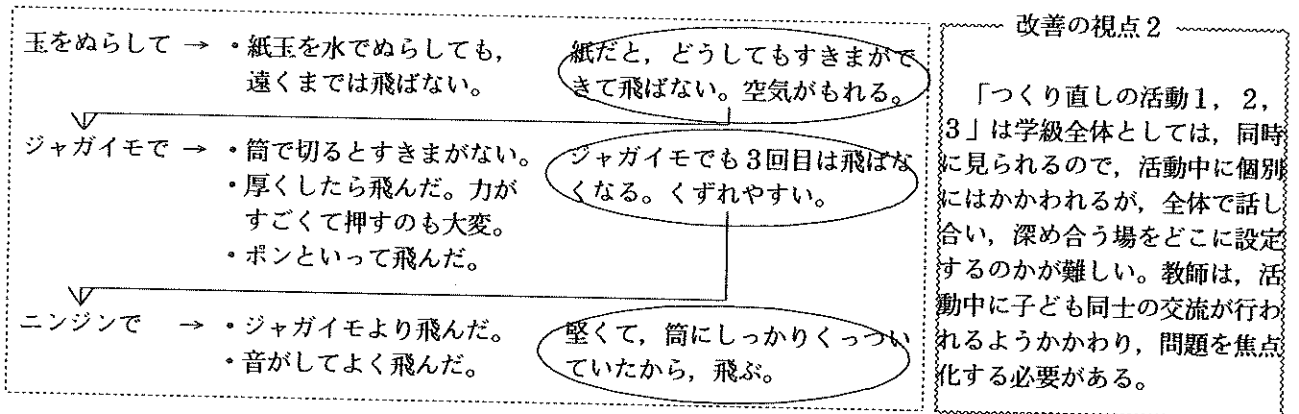 玉をぬらして → ・紙玉を水でぬらしても,
遠くまでは飛ばない。
紙だと,どうしてもすきまがで
きて飛ばない。空気がもれる。
ジャガイモで → ・筒で切るとすきまがない。
・厚くしたら飛んだ。力が
すごくて押すのも大変。
・ポンといって飛んだ。
ジャガイモでも3回目は飛ばな
くなる。くずれやすい。
ニンジンで → ・ジャガイモより飛んだ。
・音がしてよく飛んだ。
堅くて,筒にしっかりくっつい
ていたから,飛ぶ。
改善の視点2
「つくり直しの活動1, 2,
3」は学級全体としては,同時
に見られるので,活動中に個別
にはかかわれるが,全体で話し
合い,深め合う場をどこに設定
するのかが難しい。教師は,活
動中に子ども同士の交流が行わ
れるようかかわり,問題を焦点
化する必要がある。